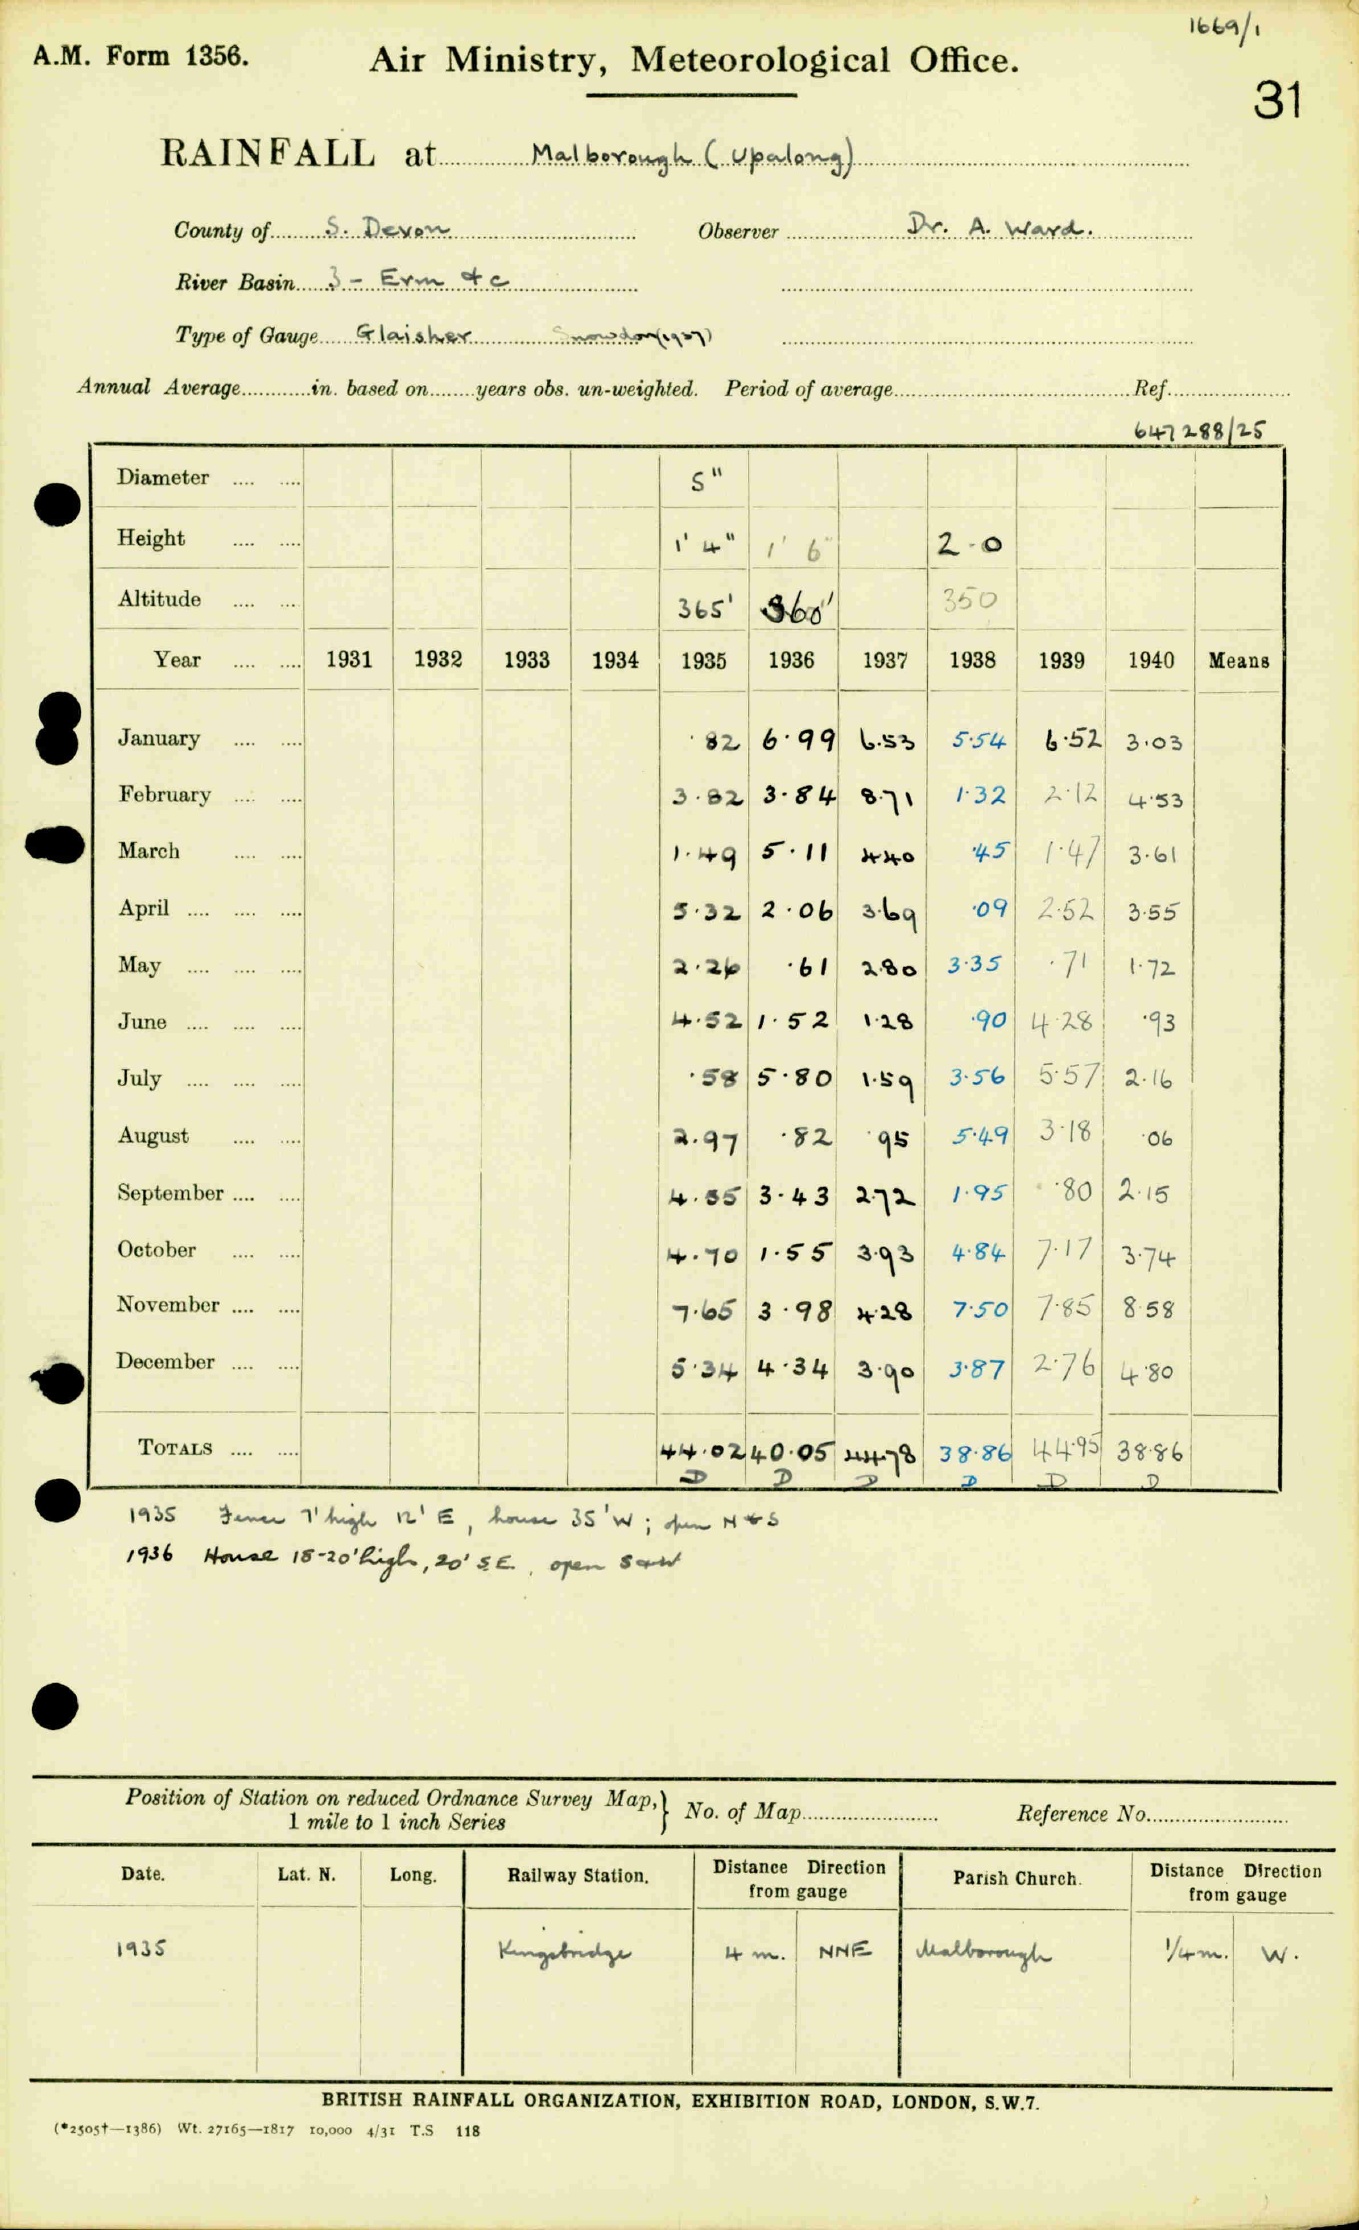 1669/1
A.M. Form 1356.
Air Ministry, Meteorological Office.
31
RAINFALL at Malborough (Upalong)
County of S. Devon Observer Dr. A. Ward.
River Basin 3 - Erm &c
Type of Gauge Glaisher Snowdon (1937)
Annual Average in. based on years obs. un-weighted. Period of average Ref.
647288/25
Diameter .... .... 5"
Height .... .... 1' 4" 1' 6" 2-0
Altitude .... .... 365' 360' 350
Year .... .... 1931 1932 1933 1934 1935 1936 1937 1938 1939 1940 Means
January .... .... ·82 6·99 6·53 5·54 6·52 3·03
February .... .... 3·82 3·84 8·71 1·32 2·12 4·53
March .... .... 1·49 5·11 4·40 ·45 1·47 3·61
April .... .... .... 5·32 2·06 3·69 ·09 2·52 3·55
May .... .... .... 2·26 ·61 2·80 3·35 ·71 1·72
June .... .... .... 4·52 1·52 1·28 ·90 4·28 ·93
July .... .... .... ·58 5·80 1·59 3·56 5·57 2·16
August .... .... 2·97 ·82 ·95 5·49 3·18 ·06
September .... .... 4·55 3·43 2·72 1·95 ·80 2·15
October .... .... 4·70 1·55 3·93 4·84 7·17 3·74
November .... .... 7·65 3·98 4·28 7·50 7·85 8·58
December .... .... 5·34 4·34 3·90 3·87 2·76 4·80
TOTALS .... .... 44·02 40·05 44·78 38·86 44·95 38·86
D D D D D D
1935 Fence 7' high 12' E, house 35' W; open N & S
1936 House 15-20' high, 20' S.E. open S & W
Position of Station on reduced Ordnance Survey Map, 1 mile to 1 inch Series } No. of Map Reference No.
Date. Lat. N. Long. Railway Station. Distance Direction from gauge Parish Church. Distance Direction from gauge
1935 Kingsbridge 4 m. NNE Malborough 1/4 m. W.
BRITISH RAINFALL ORGANIZATION, EXHIBITION ROAD, LONDON, S.W.7.
(*2505†—1386) Wt. 27165—1817 10,000 4/31 T.S 118